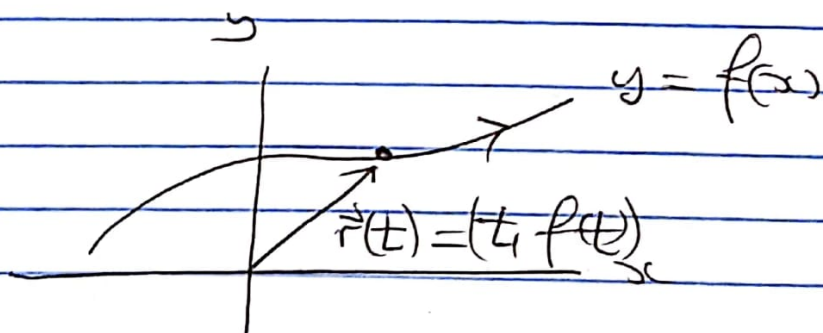 y
y = f(x)
r⃗(t) = (t, f(t))
x